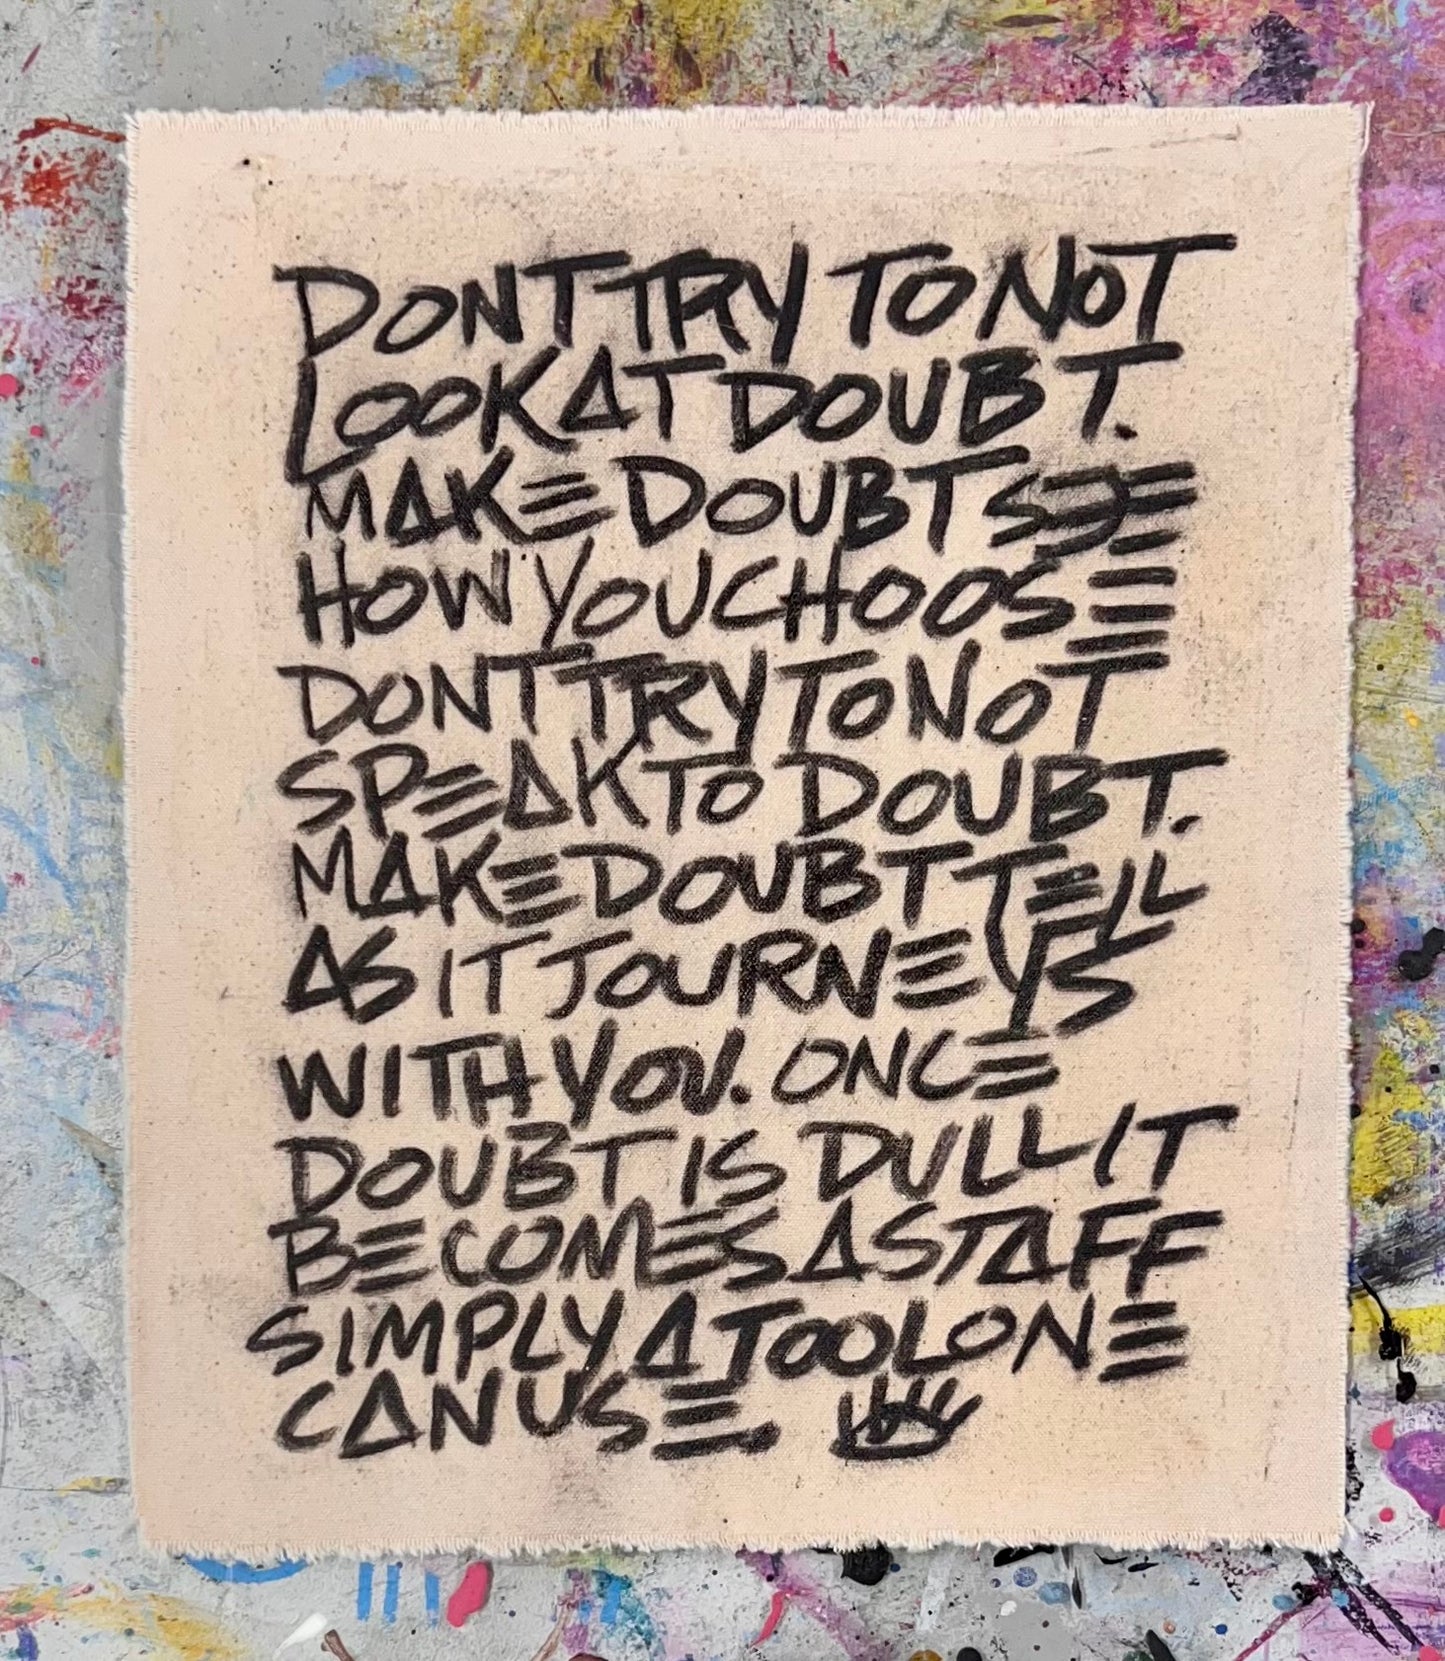 DONT TRY TO NOT
LOOK AT DOUBT.
MAKE DOUBT SEE
HOW YOU CHOOSE
DONT TRY TO NOT
SPEAK TO DOUBT.
MAKE DOUBT TELL
AS IT JOURNEYS
WITH YOU. ONCE
DOUBT IS DULL IT
BECOMES A STAFF
SIMPLY A TOOL ONE
CAN USE.